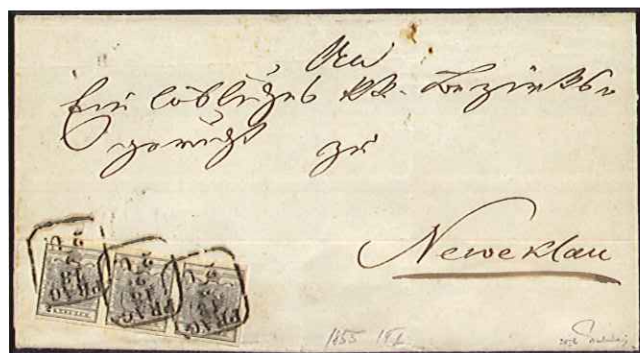 An
Ein löbliches k.k. Bezirks-
gericht zu
Neweklau
PRAG
PRAG
PRAG
1855